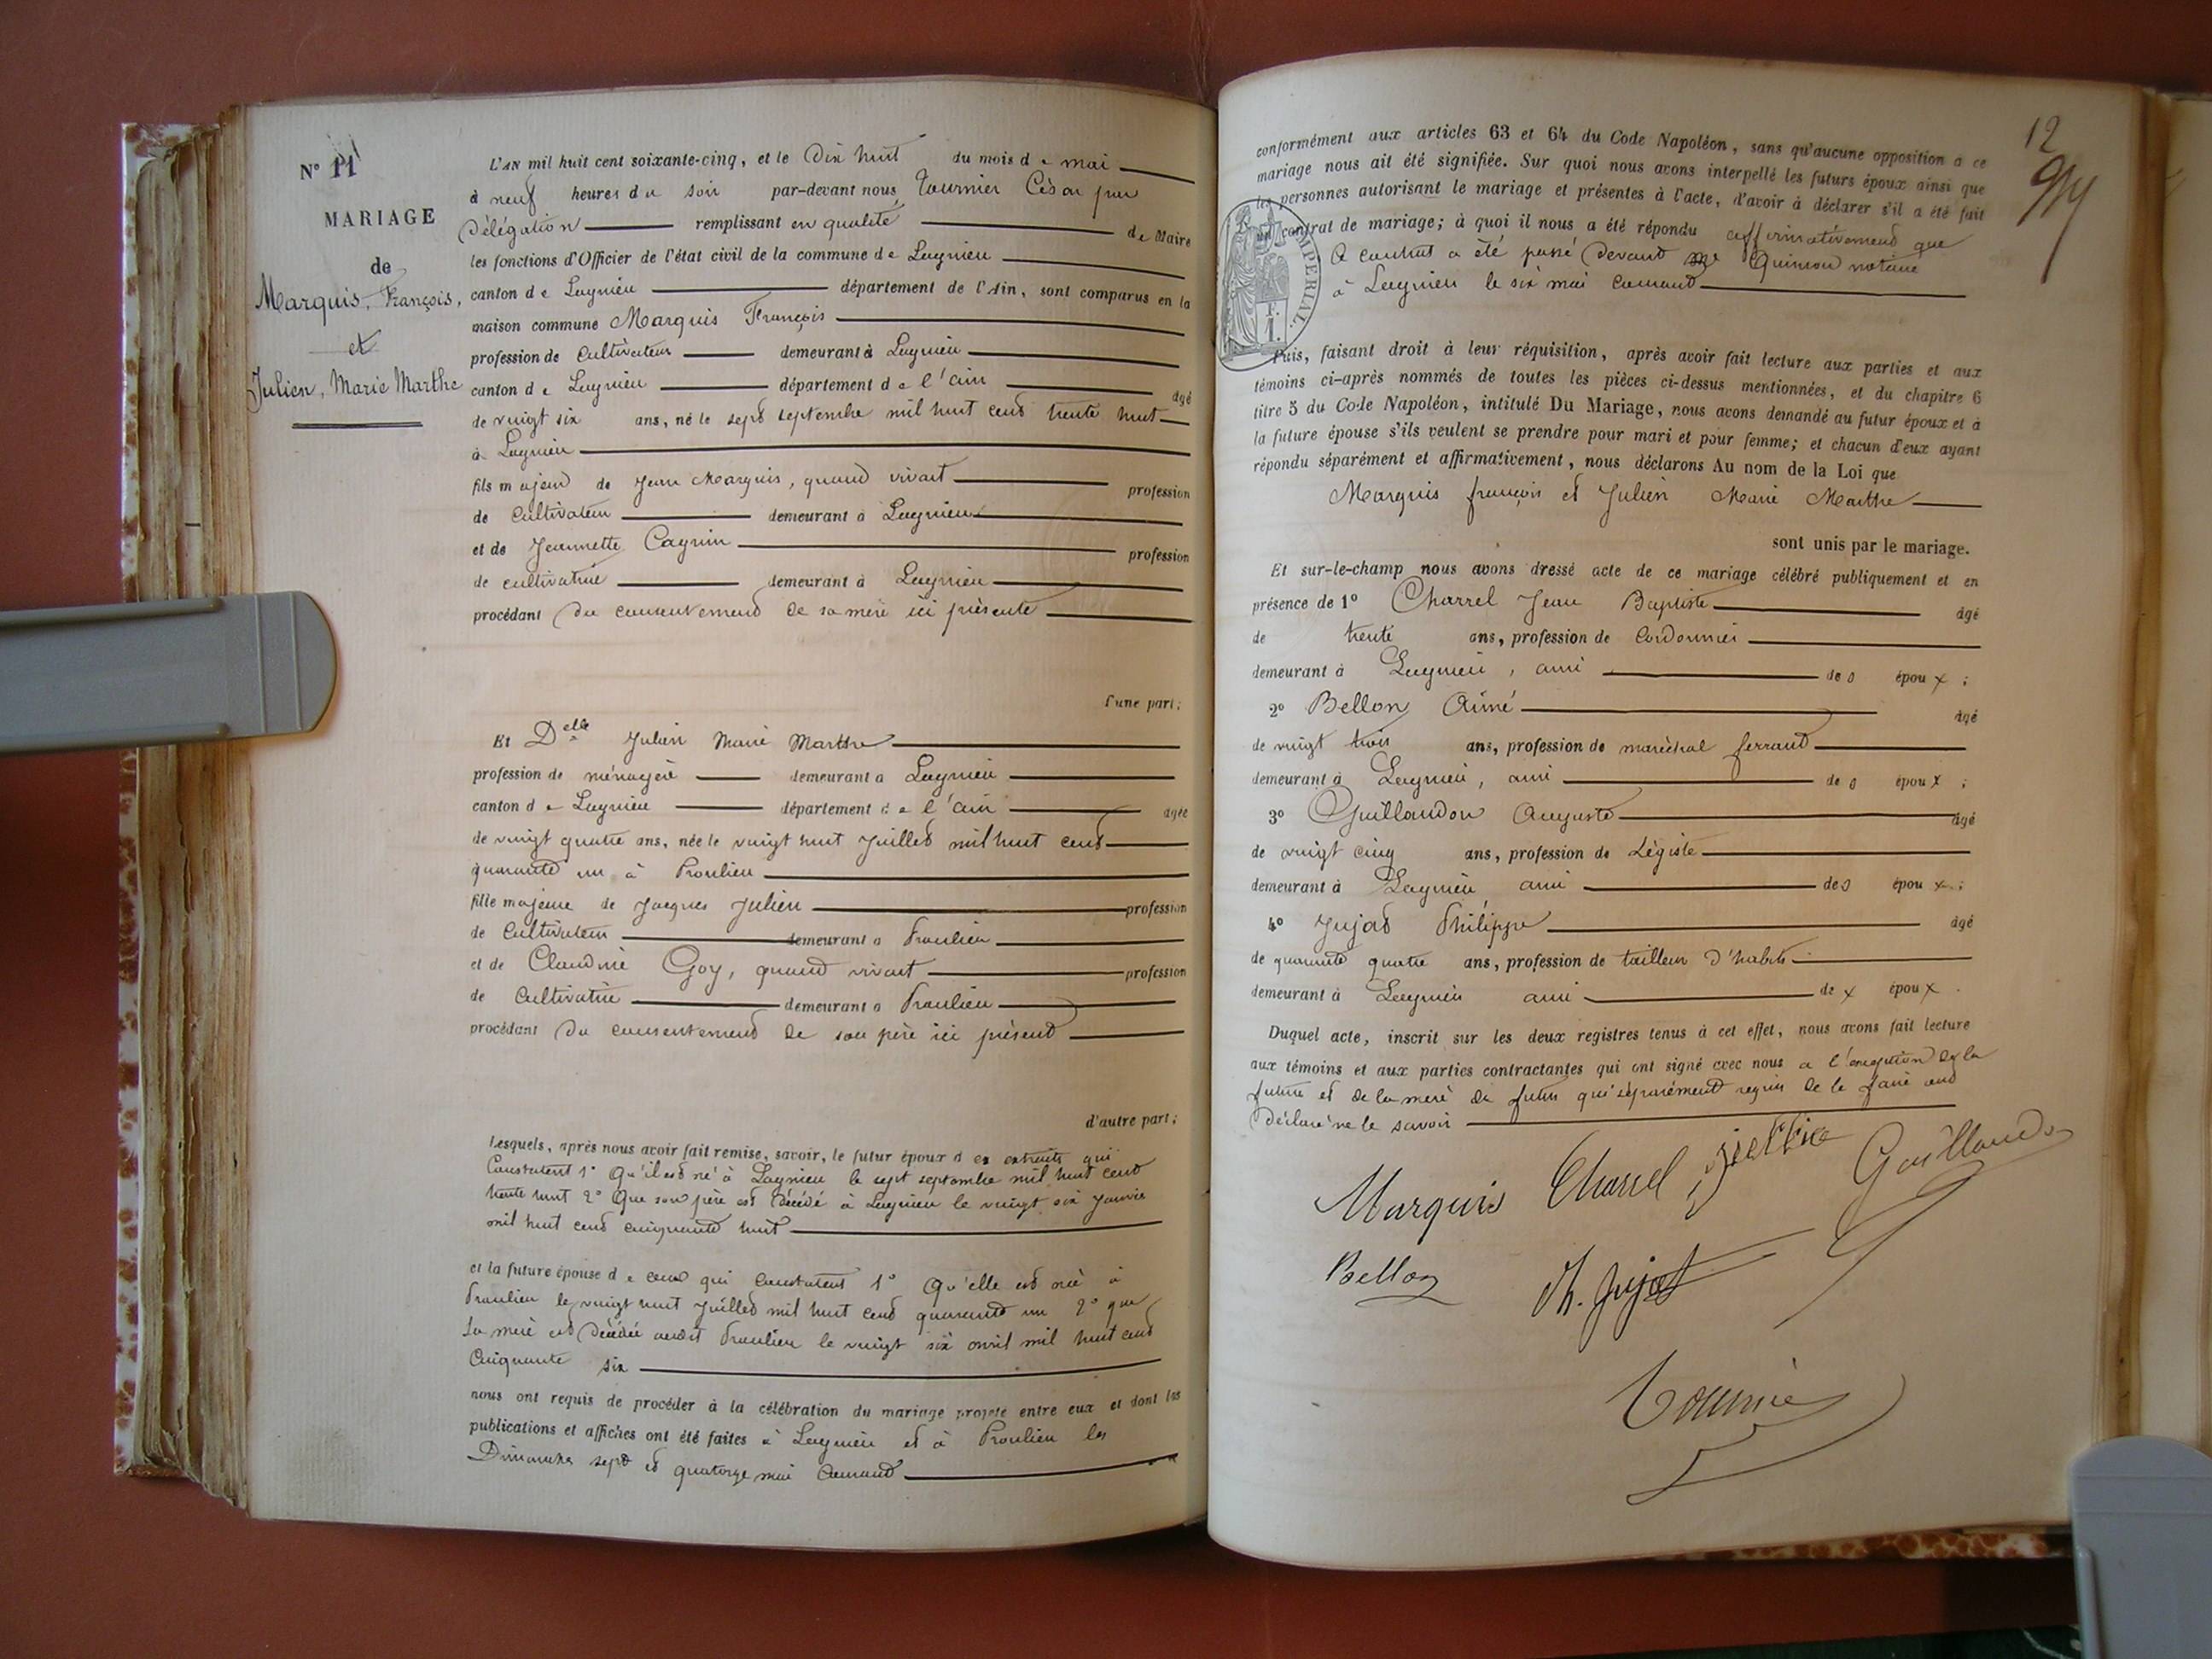 N° 11
MARIAGE
de
Marquis, François,
et
Julien, Marie Marthe
L'AN mil huit cent soixante-cinq, et le Dix huit du mois de mai
à neuf heures du soir par-devant nous Tournier Cèsar par
Délégation remplissant en qualité de Maire
les fonctions d'Officier de l'état civil de la commune de Lagnieu
canton de Lagnieu département de l'Ain, sont comparus en la
maison commune Marquis François
profession de Cultivateur demeurant à Lagnieu
canton de Lagnieu département de l'ain âgé
de vingt six ans, né le sept septembre mil huit cent trente huit
à Lagnieu
fils majeur de Jean Marquis, quand vivait profession
de Cultivateur demeurant à Lagnieu
et de Jeannette profession
de cultivatrice demeurant à Lagnieu
procédant du consentement de sa mère ici présente
d'une part;
Et Delle Julien Marie Marthe
profession de ménagère demeurant à Lagnieu
canton de Lagnieu département de l'ain âgée
de vingt quatre ans, née le vingt huit Juillet mil huit cent
quarante un à Proulieu
fille majeure de Jacques Julien profession
de Cultivateur demeurant à Proulieu
et de Claudine Goy, quand vivait profession
de Cultivatrice demeurant à Proulieu
procédant du consentement de son père ici présent
d'autre part;
Lesquels, après nous avoir fait remise, savoir, le futur époux des extraits qui
Constatent 1° Qu'il est né à Lagnieu le sept septembre mil huit cent
trente huit 2° Que son père est décédé à Lagnieu le vingt six Janvier
mil huit cent cinquante huit
et la future épouse de ceux qui Constatent 1° Qu'elle est née à
Proulieu le vingt huit Juillet mil huit cent quarante un 2° que
sa mère est Décédée audit Proulieu le vingt six avril mil huit cent
Cinquante six
nous ont requis de procéder à la célébration du mariage projeté entre eux et dont les
publications et affiches ont été faites à Lagnieu et à Proulieu les
Dimanches sept et quatorze mai Courant
12
conformément aux articles 63 et 64 du Code Napoléon, sans qu'aucune opposition à ce
mariage nous ait été signifiée. Sur quoi nous avons interpellé les futurs époux ainsi que
les personnes autorisant le mariage et présentes à l'acte, d'avoir à déclarer s'il a été fait
un contrat de mariage; à quoi il nous a été répondu affirmativement que
contrat a été passé Devant me Quinson notaire
à Lagnieu le six mai Courant
IMPERIAL.
Puis, faisant droit à leur réquisition, après avoir fait lecture aux parties et aux
témoins ci-après nommés de toutes les pièces ci-dessus mentionnées, et du chapitre 6
titre 5 du Code Napoléon, intitulé Du Mariage, nous avons demandé au futur époux et à
la future épouse s'ils veulent se prendre pour mari et pour femme; et chacun d'eux ayant
répondu séparément et affirmativement, nous déclarons Au nom de la Loi que
Marquis françois et Julien Marie Marthe
sont unis par le mariage.
Et sur-le-champ nous avons dressé acte de ce mariage célébré publiquement et en
présence de 1° Charrel Jean Baptiste âgé
de trente ans, profession de Cordonnier
demeurant à Lagnieu, ami des époux;
2° Bellon Aimé âgé
de vingt trois ans, profession de maréchal ferrant
demeurant à Lagnieu, ami des époux;
3° Guillaudon Auguste âgé
de vingt cinq ans, profession de Légiste
demeurant à Lagnieu ami des époux;
4° Jujat Philippe âgé
de quarante quatre ans, profession de tailleur d'habits
demeurant à Lagnieu ami de x époux.
Duquel acte, inscrit sur les deux registres tenus à cet effet, nous avons fait lecture
aux témoins et aux parties contractantes qui ont signé avec nous a l'exception de la
future et de la mère du futur qui séparément requis de le faire ont
déclaré ne le savoir
Marquis Charrel Guillaudon
Bellon Ph. Jujat
Tournier